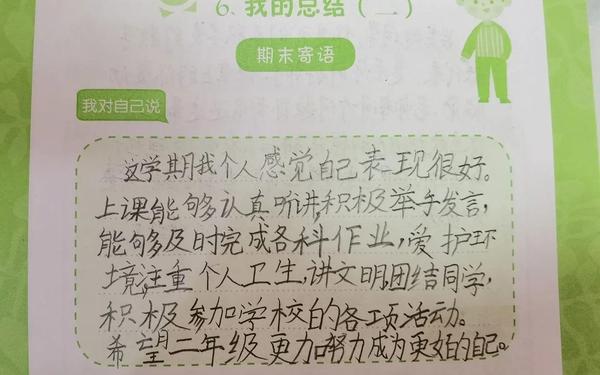 6. 我的总结（二）
期末寄语
我对自己说
这学期我个人感觉自己表现很好。
上课能够认真听讲,积极举手发言,
能够及时完成各科作业,爱护环
境,注重个人卫生,讲文明,团结同学,
积极参加学校的各项活动。
希望二年级更加努力成为更好的自己。